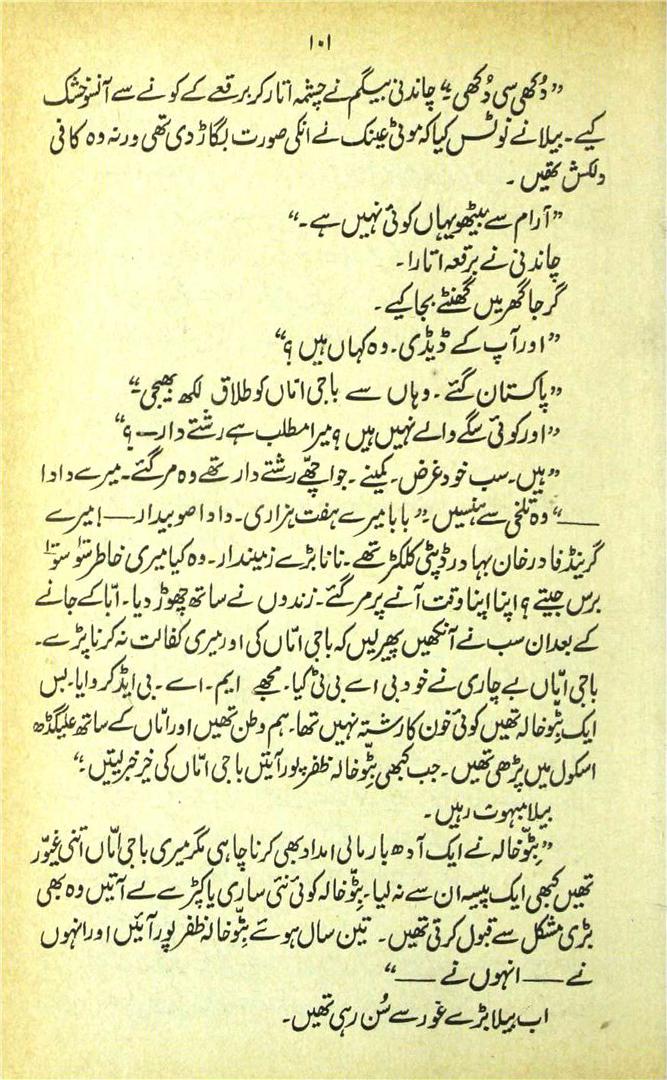 ۱۰۱
”دُکھی سی دُکھی۔“ چاندنی بیگم نے چشمہ اتار کر برقعے کے کونے سے آنسو خشک
کیے۔ بیلا نے نوٹس کیا کہ موٹی عینک نے انکی صورت بگاڑ دی تھی ورنہ وہ کافی
دلکش تھیں۔
”آرام سے بیٹھو یہاں کوئی نہیں ہے۔“
چاندنی نے برقعہ اتارا۔
گرجا گھر میں گھنٹے بجا کیے۔
”اور آپ کے ڈیڈی۔ وہ کہاں ہیں؟“
”پاکستان گئے۔ وہاں سے باجی امّاں کو طلاق لکھ بھیجی۔“
”اور کوئی سگے والے نہیں ہیں؟ میرا مطلب ہے رشتے دار—؟“
”ہیں۔ سب خود غرض۔ کمینے۔ جو اچھّے رشتے دار تھے وہ مر گئے۔ میرے دادا
—“ وہ تلخی سے ہنسیں۔ ”بابا میرے ہفت ہزاری۔ دادا صوبیدار—! میرے
گرینڈ فادر خان بہادر ڈپٹی کلکٹر تھے۔ نانا بڑے زمیندار۔ وہ کیا میری خاطر سَو سَو
برس جیتے؟ اپنا اپنا وقت آنے پر مر گئے۔ زندوں نے ساتھ چھوڑ دیا۔ ابّا کے جانے
کے بعد ان سب نے آنکھیں پھیر لیں کہ باجی امّاں کی اور میری کفالت نہ کرنا پڑے۔
باجی امّاں بے چاری نے خود بی اے بی ٹی کیا۔ مجھے ایم۔ اے۔ بی ایڈ کروایا۔ بس
ایک بِٹّو خالہ تھیں کوئی خون کا رشتہ نہیں تھا۔ ہم وطن تھیں اور امّاں کے ساتھ علیگڈھ
اسکول میں پڑھی تھیں۔ جب کبھی بِٹّو خالہ ظفر پور آتیں باجی امّاں کی خیر خبر لیتیں۔“
بیلا مبہوت رہیں۔
”بِٹّو خالہ نے ایک آدھ بار مالی امداد بھی کرنا چاہی مگر میری باجی امّاں اتنی غیّور
تھیں کبھی ایک پیسہ ان سے نہ لیا۔ بِٹّو خالہ کوئی نئی ساری یا کپڑے لے آتیں وہ بھی
بڑی مشکل سے قبول کرتی تھیں۔ تین سال ہوئے بِٹّو خالہ ظفر پور آئیں اور انہوں
نے — انہوں نے —“
اب بیلا بڑے غور سے سُن رہی تھیں۔